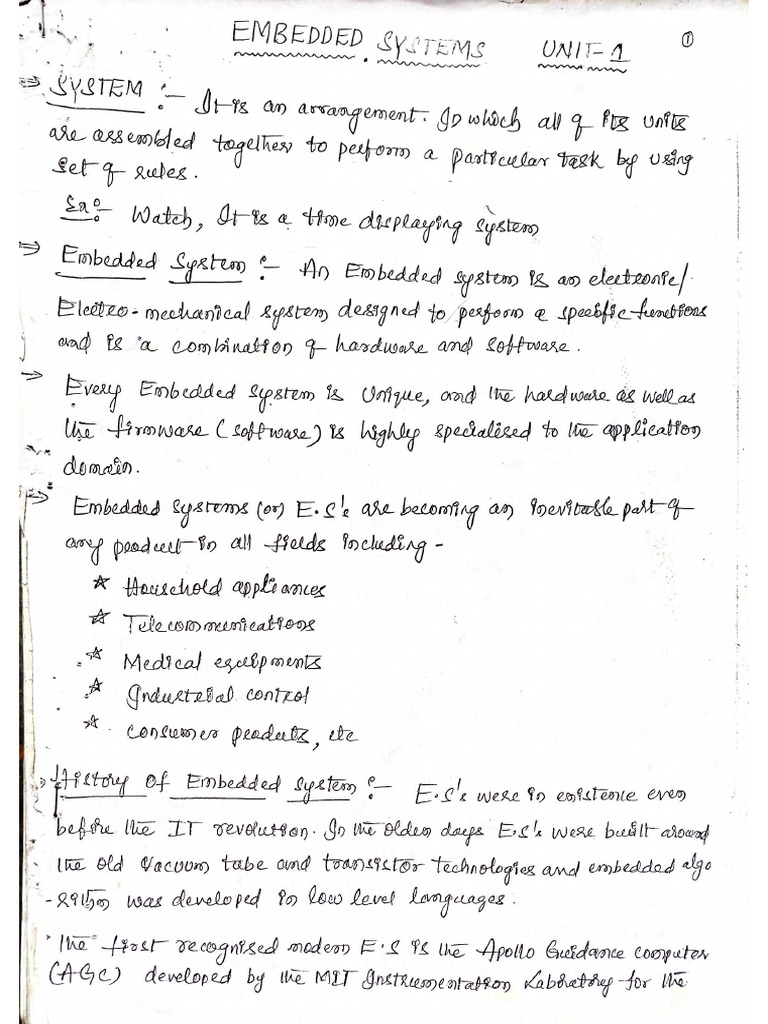 EMBEDDED SYSTEMS UNIT-1 ①
⇒ SYSTEM :- It is an arrangement. In which all of its units
are assembled together to perform a particular task by using
set of rules.
Ex:- Watch, It is a time displaying system
⇒ Embedded System :- An Embedded system is an electronic/
Electro-mechanical system designed to perform a specific functions
and is a combination of hardware and software.
⇒ Every Embedded system is Unique, and the hardware as well as
the firmware (software) is highly specialised to the application
domain.
⇒ Embedded systems (or) E.S's are becoming an inevitable part of
any product in all fields including -
☆ Household appliances
☆ Telecommunications
☆ Medical equipments
☆ Industrial control
☆ Consumer products, etc
History Of Embedded System :- E.S's were in existence even
before the IT revolution. In the olden days E.S's were built around
the old Vacuum tube and transistor technologies and embedded algo
-rithm was developed in low level languages.
The first recognised modern E.S is the Apollo Guidance computer
(AGC) developed by the MIT Instrumentation Laboratory for the